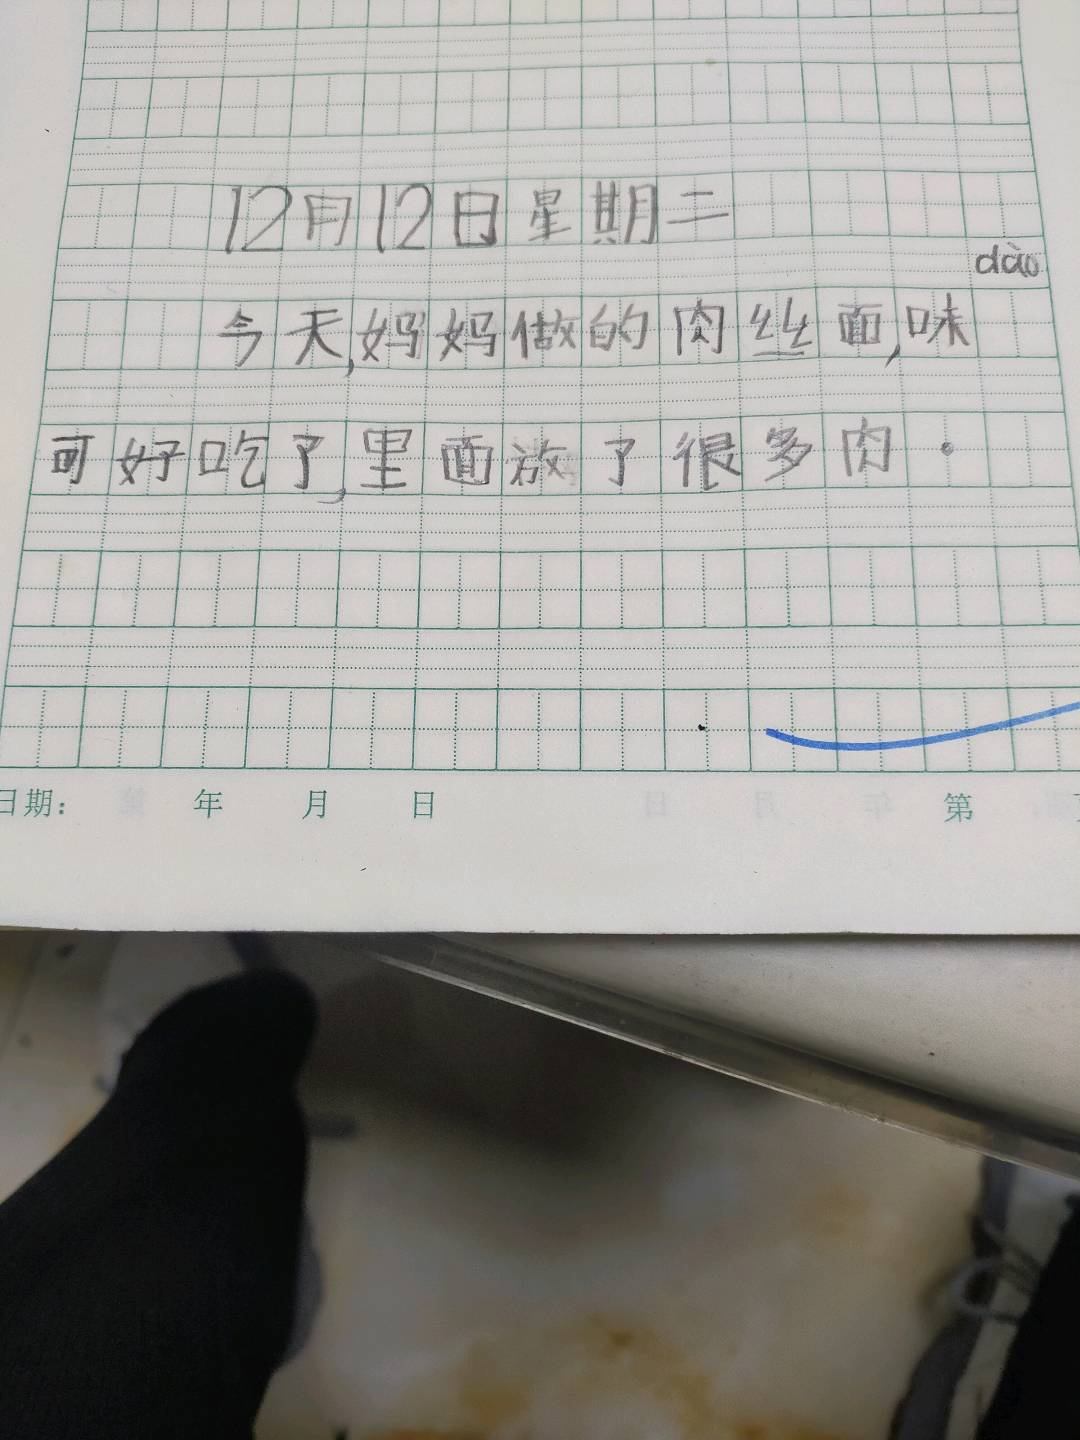 12月12日星期二
今天,妈妈做的肉丝面,味dào
可好吃了,里面放了很多肉.
日期: 年 月 日 第